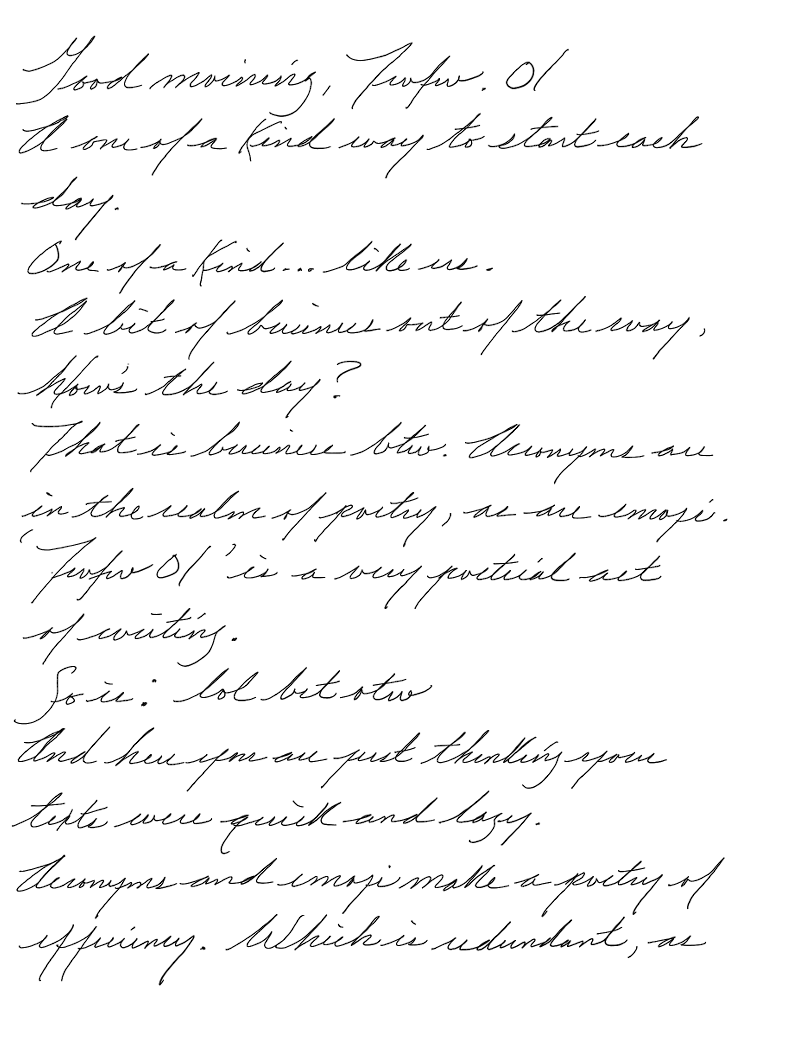 Good morning, Fwfw. 01
A one of a kind way to start each
day.
One of a kind... like us.
A bit of business out of the way,
How's the day?
That is business btw. Acronyms are
in the realm of poetry, as are emoji.
'Fwfw 01' is a very poetical act
of writing.
So is: lol bct otw
And here you are just thinking your
texts were quick and lazy.
Acronyms and emoji make a poetry of
efficiency. Which is redundant, as